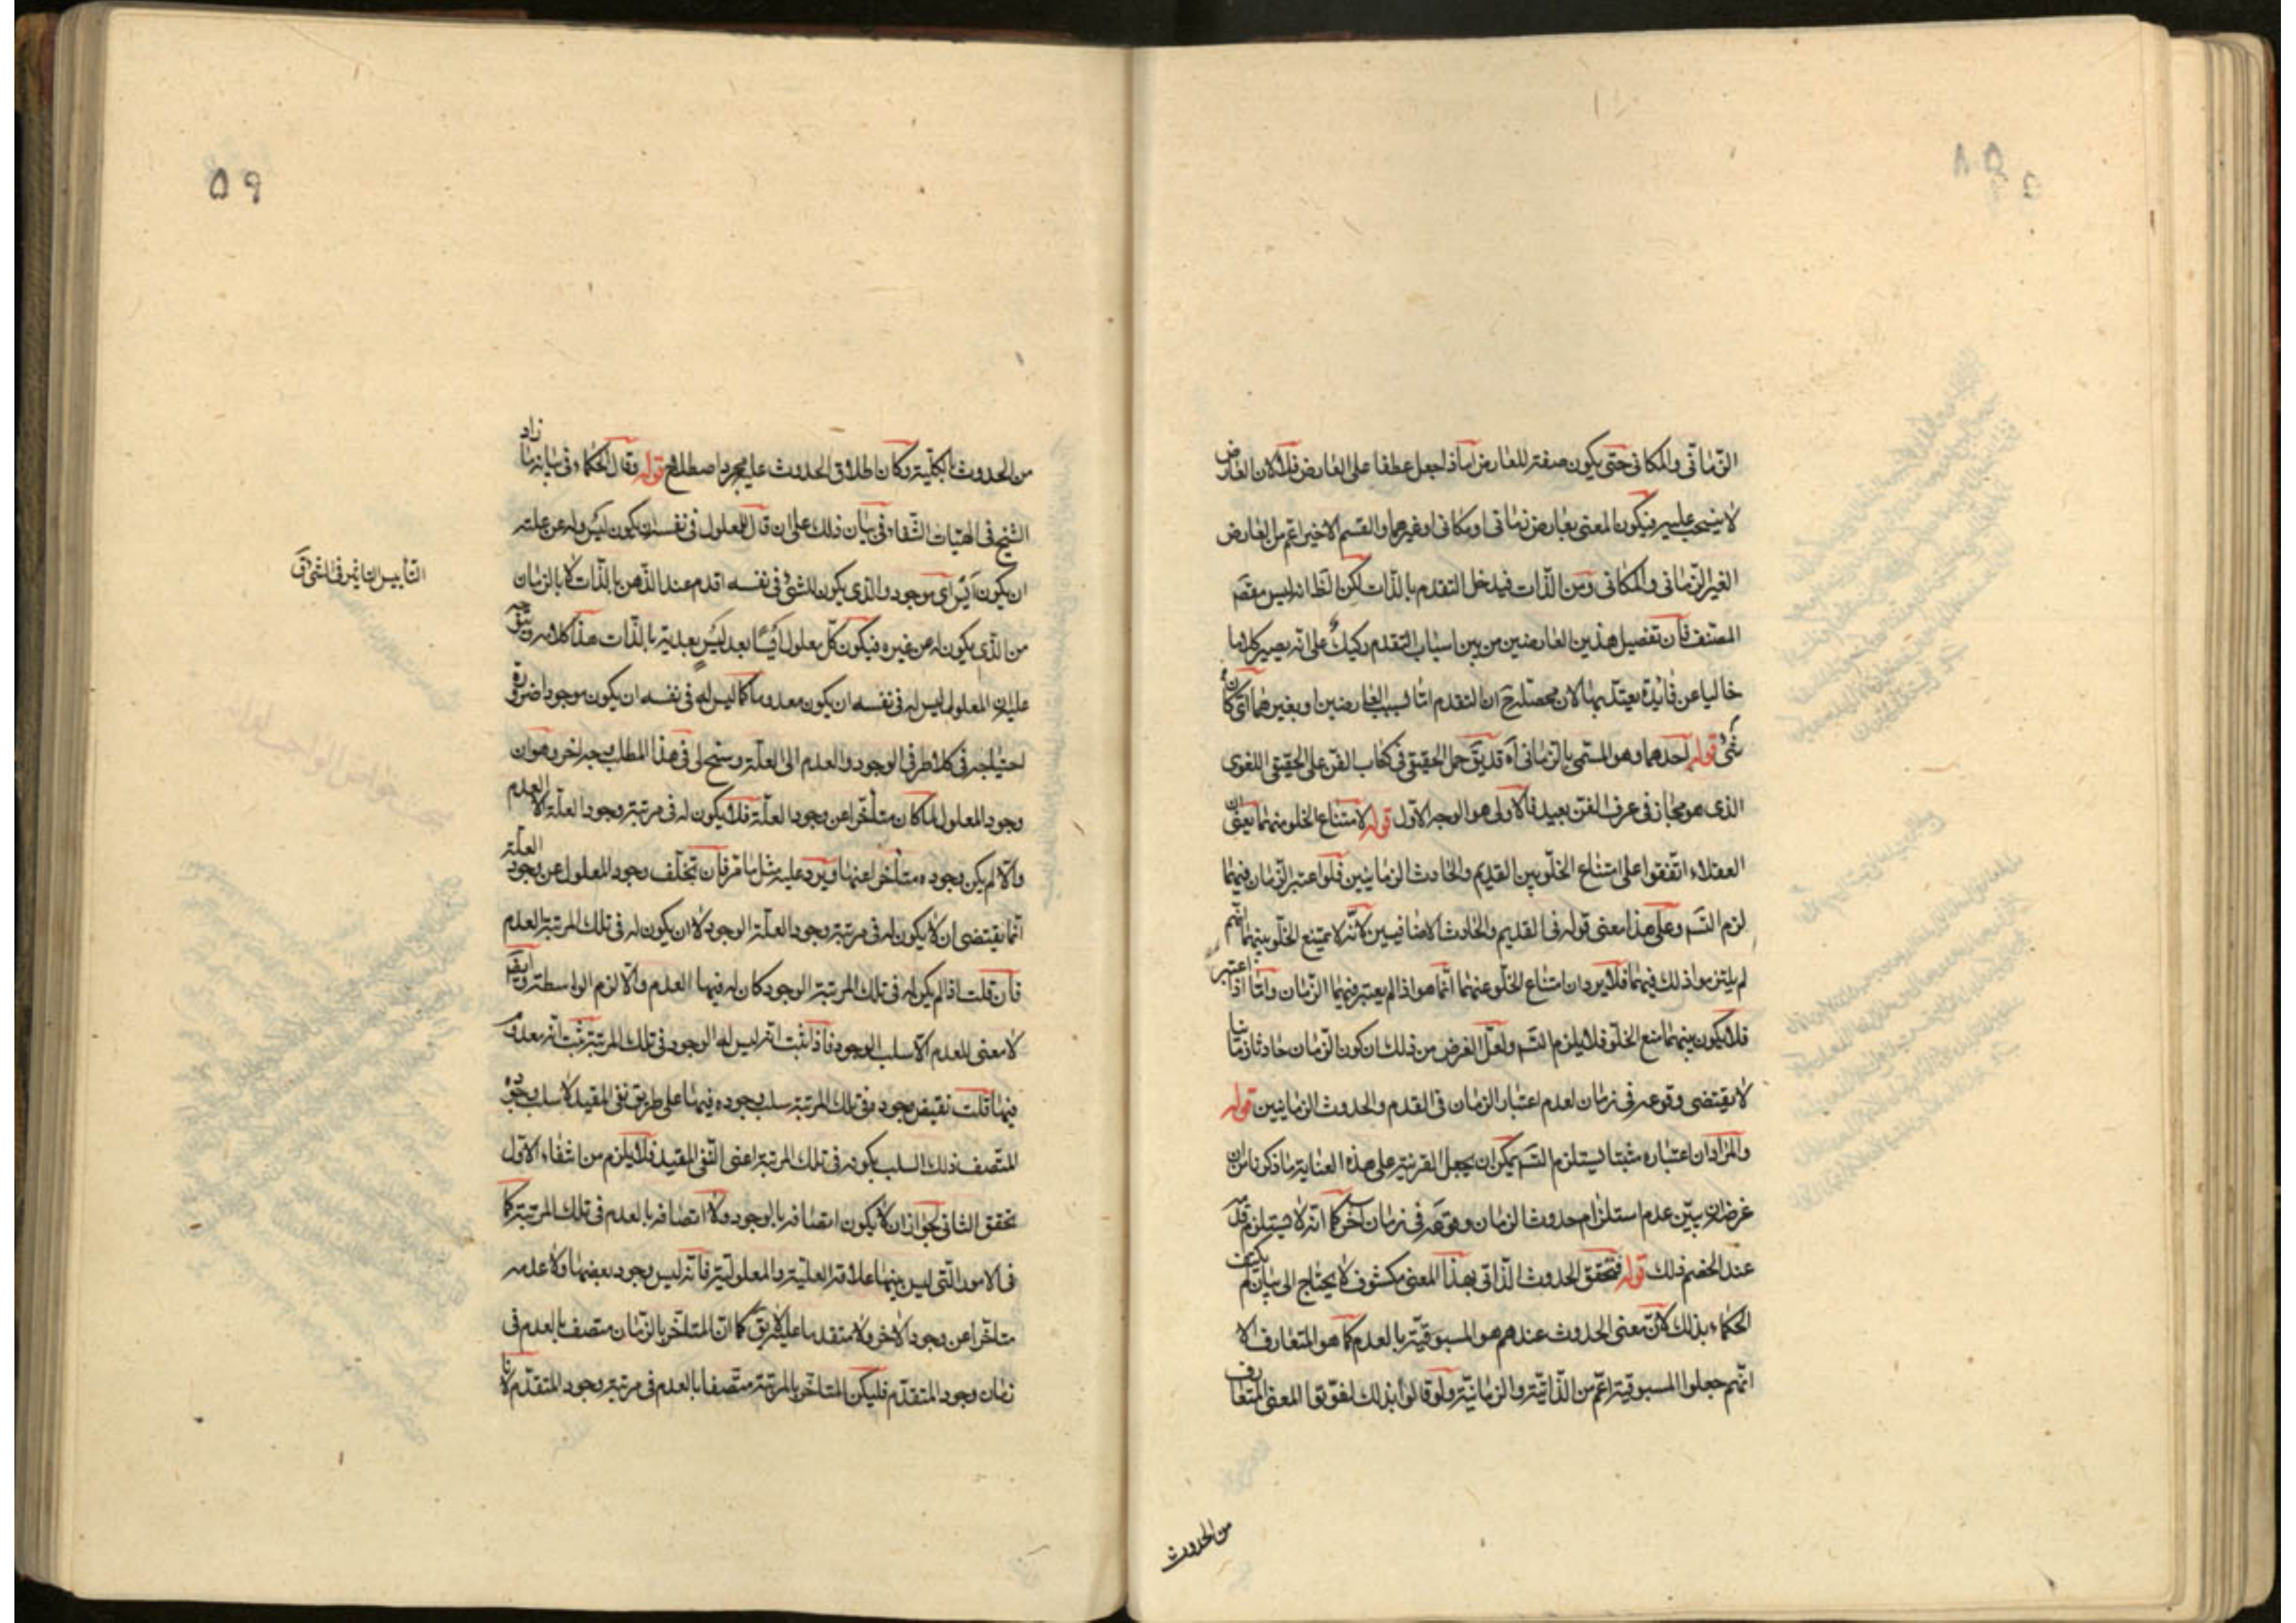 ٥٨
الزّمانى والمكانى حتى يكون صفة للعارض امّا اذا جعل عطفا على العارض فلا لان العارض
لا ينسحب عليه فيكون المعنى بعارض زمانى او مكانى او غيرهما والقسم الاخير اعمّ من العارض
الغير الزّمانى والمكانى ومن الذّات فيدخل التقدم بالذّات لكن الظ انه ليس مقصَد
المصنف فان تفصيل هذين العارضين من بين اسباب التقدم ركيك على انّه يصير كلاما
خاليا عن فائدة يعتدّ بها لان محصّله ح ان التقدم امّا بسبب العارضين او بغيرهما اىّ كان
شىء قوله احدهما وهو المسمى بالزمانى آه قد يق حمل الحقيقى فى كتاب الفن على الحقيقى اللغوى
الذى هو مجاز فى عرف الفن بعيد فالاولى هو الوجه الاول قوله لامتناع الخلو منهما يعنى ان
العقلاء اتّفقوا على امتناع الخلو بين القديم والحادث الزمانيين فلو اعتبر الزّمان فيهما
لزم التسَـ وعلى هذا معنى قوله فى القديم والحادث الاضافيين لانّه لا يمتنع الخلو بينهما انّهم
لم يلتزموا ذلك فيهما فلا يرد ان امتناع الخلو عنهما انّما هو اذا لم يعتبر فيهما الزّمان وامّا اذا اعتبر
فلا يكون بينهما منع الخلوّ فلا يلزم التسَـ ولعلّ الغرض من ذلك ان كون الزمان حادثا زمانيا
لا يقتضى وقوعه فى زمان لعدم اعتبار الزمان فى القدم والحدوث الزمانيين قوله
والمراد ان اعتباره مثبتا يستلزم التسَـ يمكن ان يجعل القرينة على هذه العناية ما ذكرنا من ان
غرضه ان يبيّن عدم استلزام حدوث الزمان وقوعه فى زمان آخر كما انّه لا يستلزم قدمه
عند الخصم ذلك قوله فتحقق الحدوث الذّاتى بهذا المعنى مكشوف لا يحتاج الى بيان لم يكتف
الحكماء بذلك لانّ معنى الحدوث عندهم هو المسبوقيّة بالعدم كما هو المتعارف الا
انّهم جعلوا المسبوقية اعمّ من الذّاتيّة والزمانيّة ولو قالوا بذلك لفوّتوا المعنى المتعارف
من الحدوث
٥٩
من الحدوث بالكلّية وكان اطلاق الحدوث عليه مجرد اصطلاح قوله وقال الحكماء فى بيانه ما زاد
الشيخ فى الهيّات الشّفاء فى بيان ذلك على ان قال للمعلول فى نفسه ان يكون لَيْس وله عن علته
ان يكون اَيْس اى موجود والذى يكون للشىء فى نفسه اقدم عند الذّهن بالذّات لا بالزمان
من الذّى يكون له عن غيره فيكون كلّ معلول اَيْسًا بعد لَيْسٍ بعديّة بالذّات هذا كلامه ويتجه
عليه ان المعلول ليس له فى نفسه ان يكون معدوما كما ليس له فى نفسه ان يكون موجودا ضرورة
احتياجه فى كلا طرفى الوجود والعدم الى العلّة وسنح لى فى هذا المطلب وجه آخر وهو ان
وجود المعلول لما كان متأخّرا عن وجود العلّة فلا يكون له فى مرتبة وجود العلّة الا العدم
والّا لم يكن وجوده متأخّرا عنها ويرد عليه مثل ما مرّ فان تخلّف وجود المعلول عن وجود العلّة
انّما يقتضى ان لا يكون له فى مرتبة وجود العلّة الوجود لا ان يكون له فى تلك المرتبة العدم
فان قلت اذا لم يكن له فى تلك المرتبة الوجود كان له فيها العدم والّا لزم الواسطة وايضا
لا معنى للعدم الّا سلب الوجود فاذا ثبت انّه ليس له الوجود فى تلك المرتبة ثبت انّه معدوم
فيها قلت نقيض وجوده فى تلك المرتبة سلب وجوده فيها على طريق نفى المقيد لا سلب وجوده
المتّصف ذلك السلب بكونه فى تلك المرتبة اعنى النّفى المقيد فلا يلزم من انتفاء الاوّل
تحقق الثانى لجواز ان لا يكون اتصافه بالوجود ولا اتصافه بالعدم فى تلك المرتبة كما
فى الامور الّتى ليس بينها علاقة العليّة والمعلوليّة فانّه ليس وجود بعضها ولا عدمه
متأخّرا عن وجود الآخر ولا متقدما عليه لا يق كما انّ المتأخّر بالزّمان متصف بالعدم فى
زمان وجود المتقدّم فليكن المتاخّر بالمرتبة متّصفا بالعدم فى مرتبة وجود المتقدّم لانا